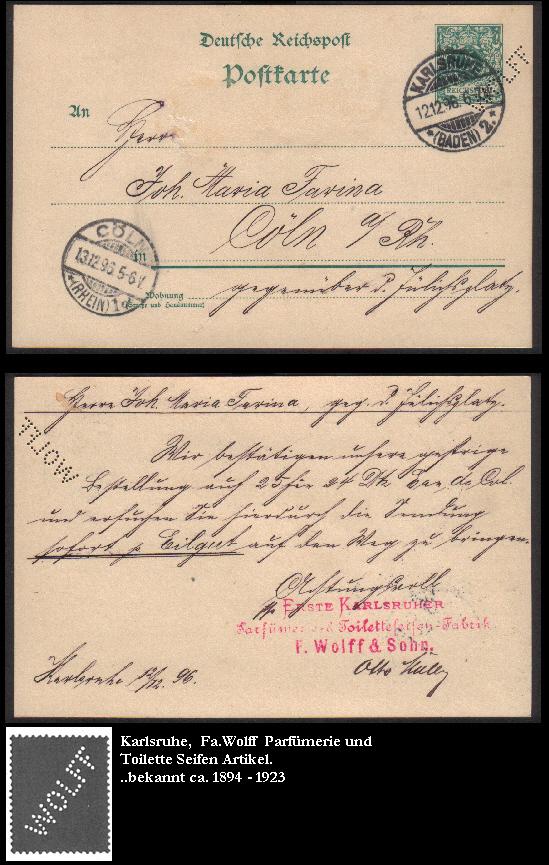 Deutsche Reichspost
Postkarte
KARLSRUHE
12.12.96
*(BADEN) 2.*
REICHSPOST
An
Herrn
Joh. Maria Farina
Cöln a/Rh.
in
CÖLN
13.12.96 5-6V
*(RHEIN) 1
Wohnung
(Straße und Hausnummer)
gegenüber d. Jülichsplatz.
Herrn Joh. Maria Farina, geg. d. Jülichsplatz.
WOLFF
Wir bestätigen unsere gestrige
Bestellung auf 25 24 Eau de Col.
und ersuchen Sie hierdurch die Sendung
sofort p Eilgut auf den Weg zu bringen.
Achtungsvoll
ERSTE KARLSRUHER
Parfümerie und Toiletteseifen-Fabrik
F. Wolff & Sohn.
Karlsruhe 12/12. 96.
Otto
WOLFF
Karlsruhe, Fa.Wolff Parfümerie und
Toilette Seifen Artikel.
..bekannt ca. 1894 - 1923